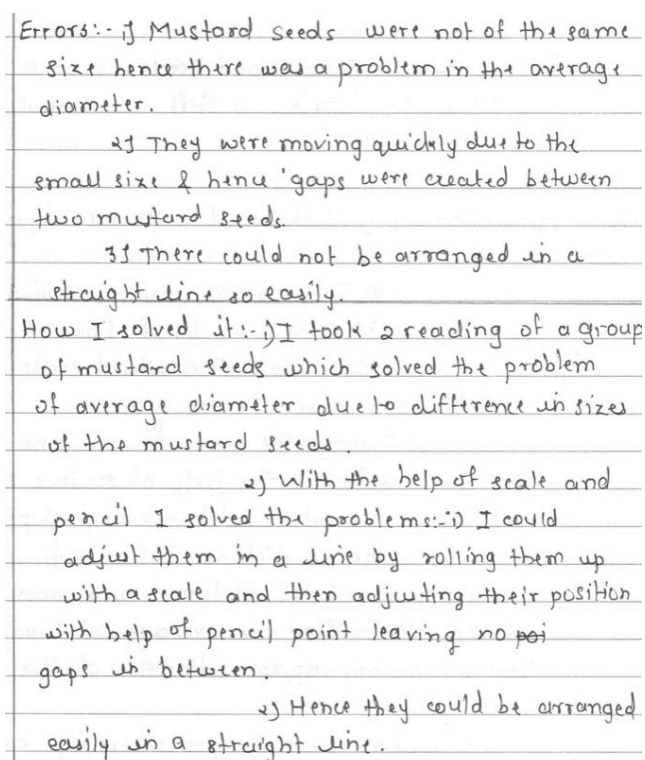 Errors:- 1] Mustard seeds were not of the same
size hence there was a problem in the average
diameter.
2] They were moving quickly due to the
small size & hence 'gaps were created between
two mustard seeds.
3] There could not be arranged in a
straight line so easily.
How I solved it:- 1) I took 2 reading of a group
of mustard seeds which solved the problem
of average diameter due to difference in sizes
of the mustard seeds.
2) With the help of scale and
pencil I solved the problems:- 1) I could
adjust them in a line by rolling them up
with a scale and then adjusting their position
with help of pencil point leaving no poi
gaps in between.
2) Hence they could be arranged
easily in a straight line.